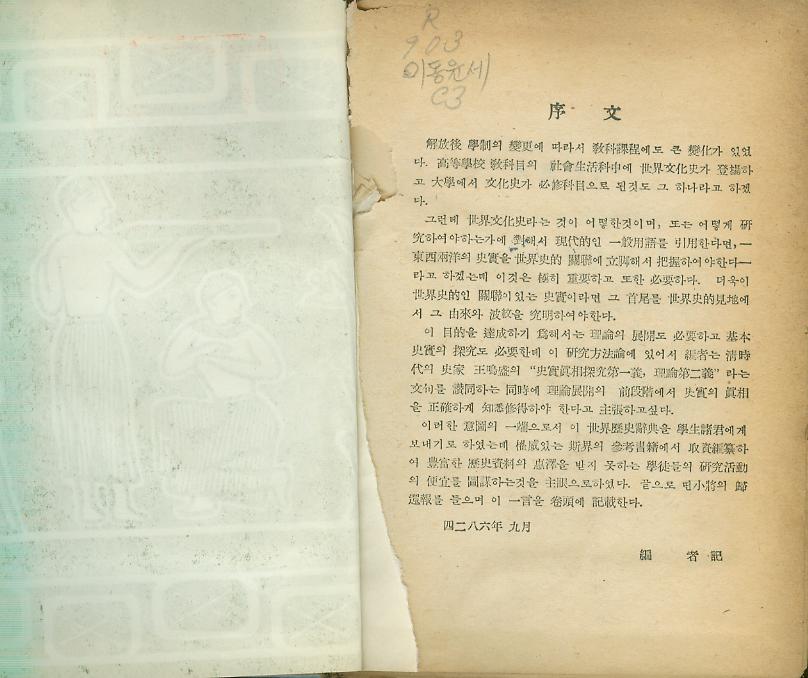 R
903
이동윤세
C3
序 文
解放後 學制의 變更에 따라서 敎科課程에도 큰 變化가 있었
다. 高等學校 敎科目의 社會生活科中에 世界文化史가 登場하
고 大學에서 文化史가 必修科目으로 된것도 그 하나라고 하겠
다.
그런데 世界文化史라는 것이 어떻한것이며, 또는 어떻게 硏
究하여야하는가에 對해서 現代的인 一般用語를 引用한다면,—
東西兩洋의 史實을 世界史的 關聯에 立脚해서 把握하여야한다—
라고 하겠는데 이것은 極히 重要하고 또한 必要하다. 더욱이
世界史的인 關聯이있는 史實이라면 그 首尾를 世界史的見地에
서 그 由來와 波紋을 究明하여야한다.
이 目的을 達成하기 爲해서는 理論의 展開도 必要하고 基本
史實의 探究도 必要한데 이 硏究方法論에 있어서 編者는 淸時
代의 史家 王鳴盛의 “史實眞相探究第一義, 理論第二義” 라는
文句를 讚同하는 同時에 理論展開의 前段階에서 史實의 眞相
을 正確하게 知悉修得하야 한다고 主張하고싶다.
이러한 意圖의 一端으로서 이 世界歷史辭典을 學生諸君에게
보내기로 하였는데 權威있는 斯界의 參考書籍에서 取資編纂하
여 豊富한 歷史資料의 惠澤을 받지 못하는 學徒들의 硏究活動
의 便宜를 圖謀하는것을 主眼으로하였다. 끝으로 면小將의 歸
還報를 들으며 이 一言을 卷頭에 記載한다.
四二八六年 九月
編 者 記